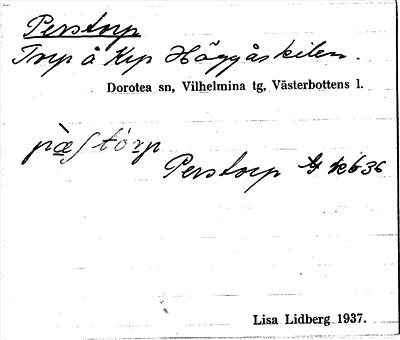 Perstorp
Torp å Krp Häggåskilen.
Dorotea sn, Vilhelmina tg, Västerbottens l.
pæ̀ʃtórp
Perstorp
Lisa Lidberg 1937.